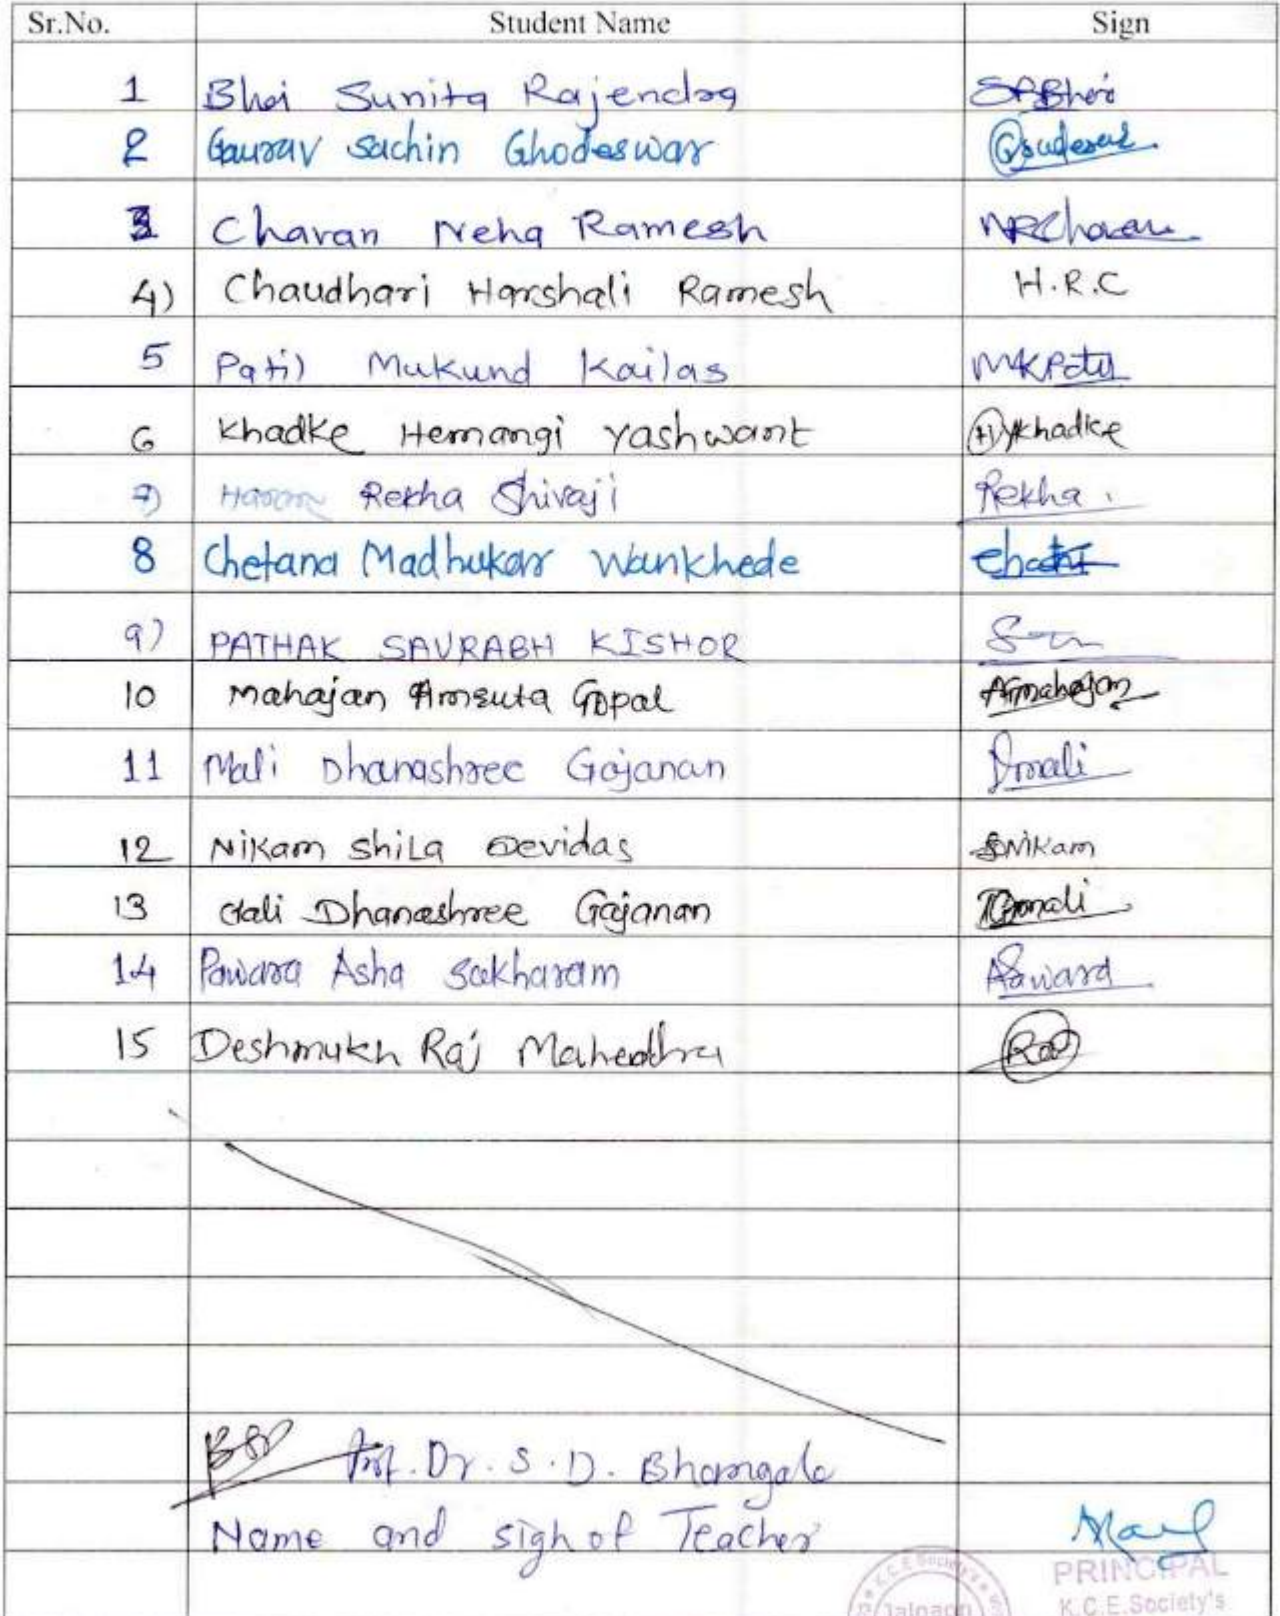 Sr.No. Student Name Sign
1 Bhoi Sunita Rajendra SRBhoi
2 Gaurav Sachin Ghodeswar
3 Chavan Neha Ramesh NRChavan
4) Chaudhari Harshali Ramesh H.R.C
5 Patil Mukund Kailas MKPatil
6 Khadke Hemangi Yashwant HYKhadke
7) Rekha Shivaji Rekha
8 Chetana Madhukar Wankhede
9) PATHAK SAURABH KISHOR
10 Mahajan Amruta Gopal AGmahajan
11 Mali Dhanashree Gajanan Dmali
12 Nikam Shila Devidas SNikam
13 Dhanashree Gajanan
14 Pawara Asha Sakharam APawara
15 Deshmukh Raj Mahendra Raj
Prof. Dr. S. D. Bhamgale
Name and sigh of Teacher
PRINCIPAL
K.C.E. Society's
K.C.E Society's
Jalgaon